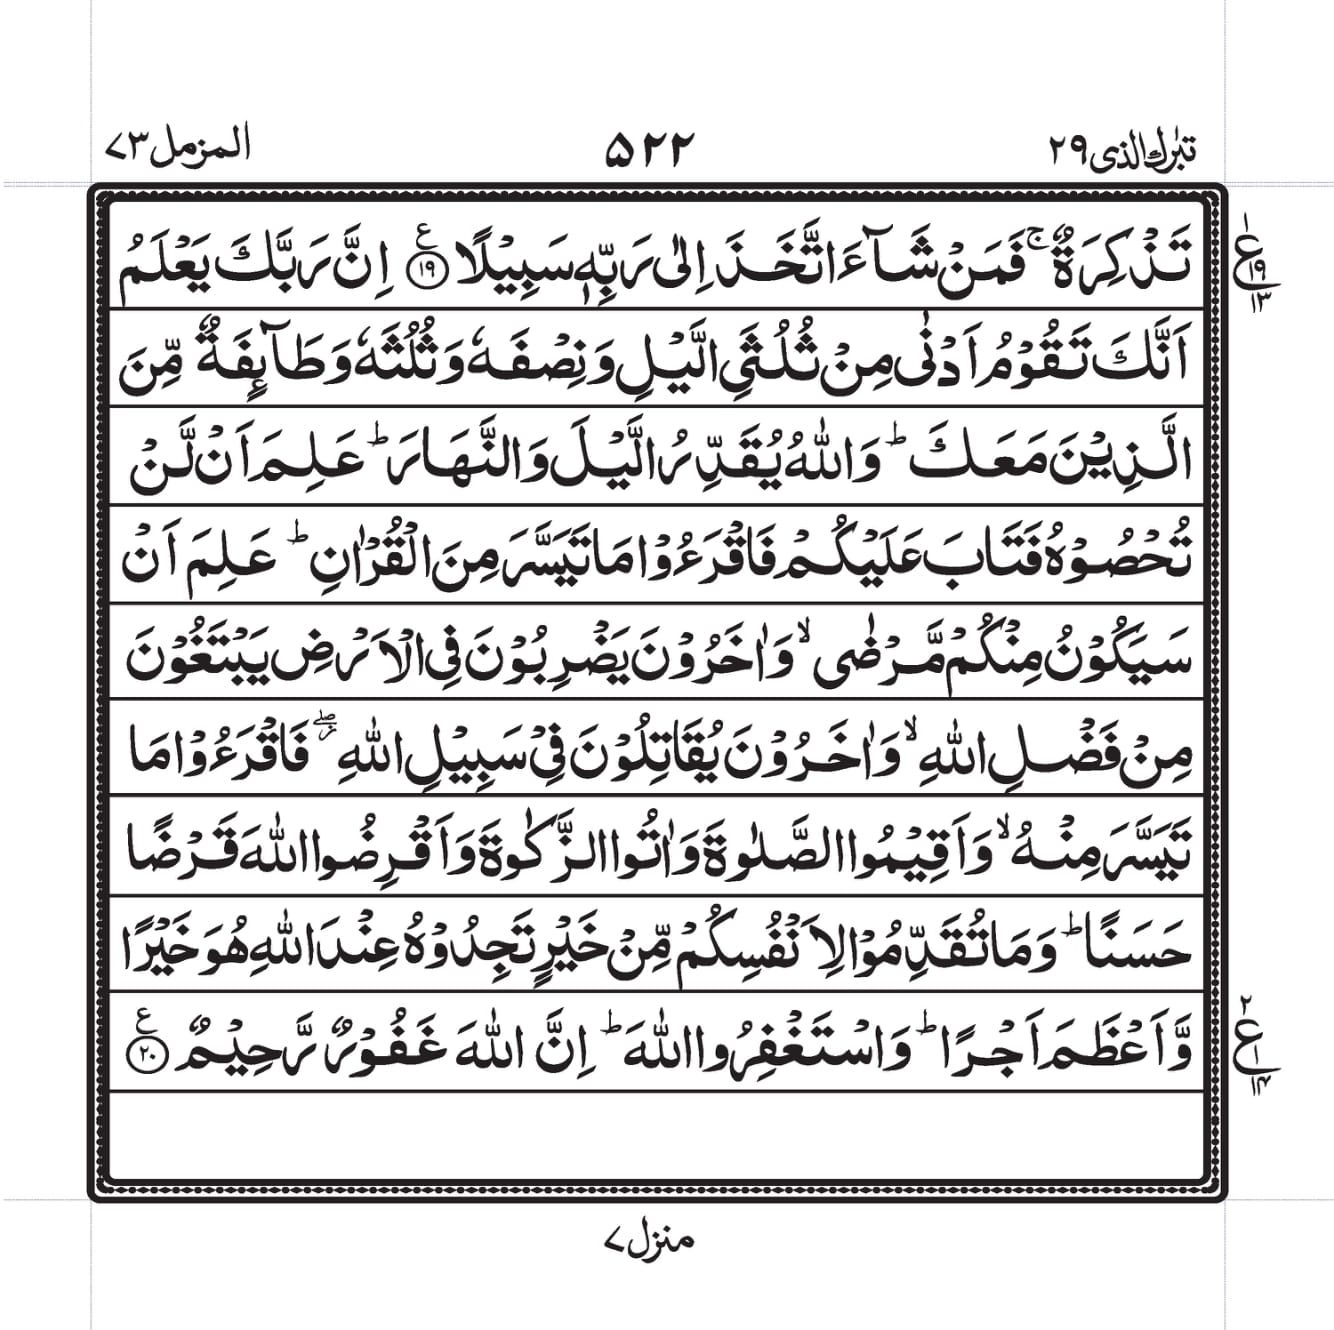 تبٰرك الذی ٢٩
۵۲۲
المزمل ٧٣
تَذْكِرَةٌ ۚ فَمَنْ شَآءَ اتَّخَذَ اِلٰى رَبِّهٖ سَبِيْلًا ࣖ ١٩ اِنَّ رَبَّكَ يَعْلَمُ
ع ١ ١٩ ١٣
اَنَّكَ تَقُوْمُ اَدْنٰى مِنْ ثُلُثَيِ الَّيْلِ وَنِصْفَهٗ وَثُلُثَهٗ وَطَآىِٕفَةٌ مِّنَ
الَّذِيْنَ مَعَكَ ؕ وَاللّٰهُ يُقَدِّرُ الَّيْلَ وَالنَّهَارَ ؕ عَلِمَ اَنْ لَّنْ
تُحْصُوْهُ فَتَابَ عَلَيْكُمْ فَاقْرَءُوْا مَا تَيَسَّرَ مِنَ الْقُرْاٰنِ ؕ عَلِمَ اَنْ
سَيَكُوْنُ مِنْكُمْ مَّرْضٰى ۙ وَاٰخَرُوْنَ يَضْرِبُوْنَ فِى الْاَرْضِ يَبْتَغُوْنَ
مِنْ فَضْلِ اللّٰهِ ۙ وَاٰخَرُوْنَ يُقَاتِلُوْنَ فِيْ سَبِيْلِ اللّٰهِ ۖ فَاقْرَءُوْا مَا
تَيَسَّرَ مِنْهُ ۙ وَاَقِيْمُوا الصَّلٰوةَ وَاٰتُوا الزَّكٰوةَ وَاَقْرِضُوا اللّٰهَ قَرْضًا
حَسَنًا ؕ وَمَا تُقَدِّمُوْا لِاَنْفُسِكُمْ مِّنْ خَيْرٍ تَجِدُوْهُ عِنْدَ اللّٰهِ هُوَ خَيْرًا
وَّاَعْظَمَ اَجْرًا ؕ وَاسْتَغْفِرُوا اللّٰهَ ؕ اِنَّ اللّٰهَ غَفُوْرٌ رَّحِيْمٌ ࣖ ٢٠
ع ٢ ١ ١٤
منزل ٧